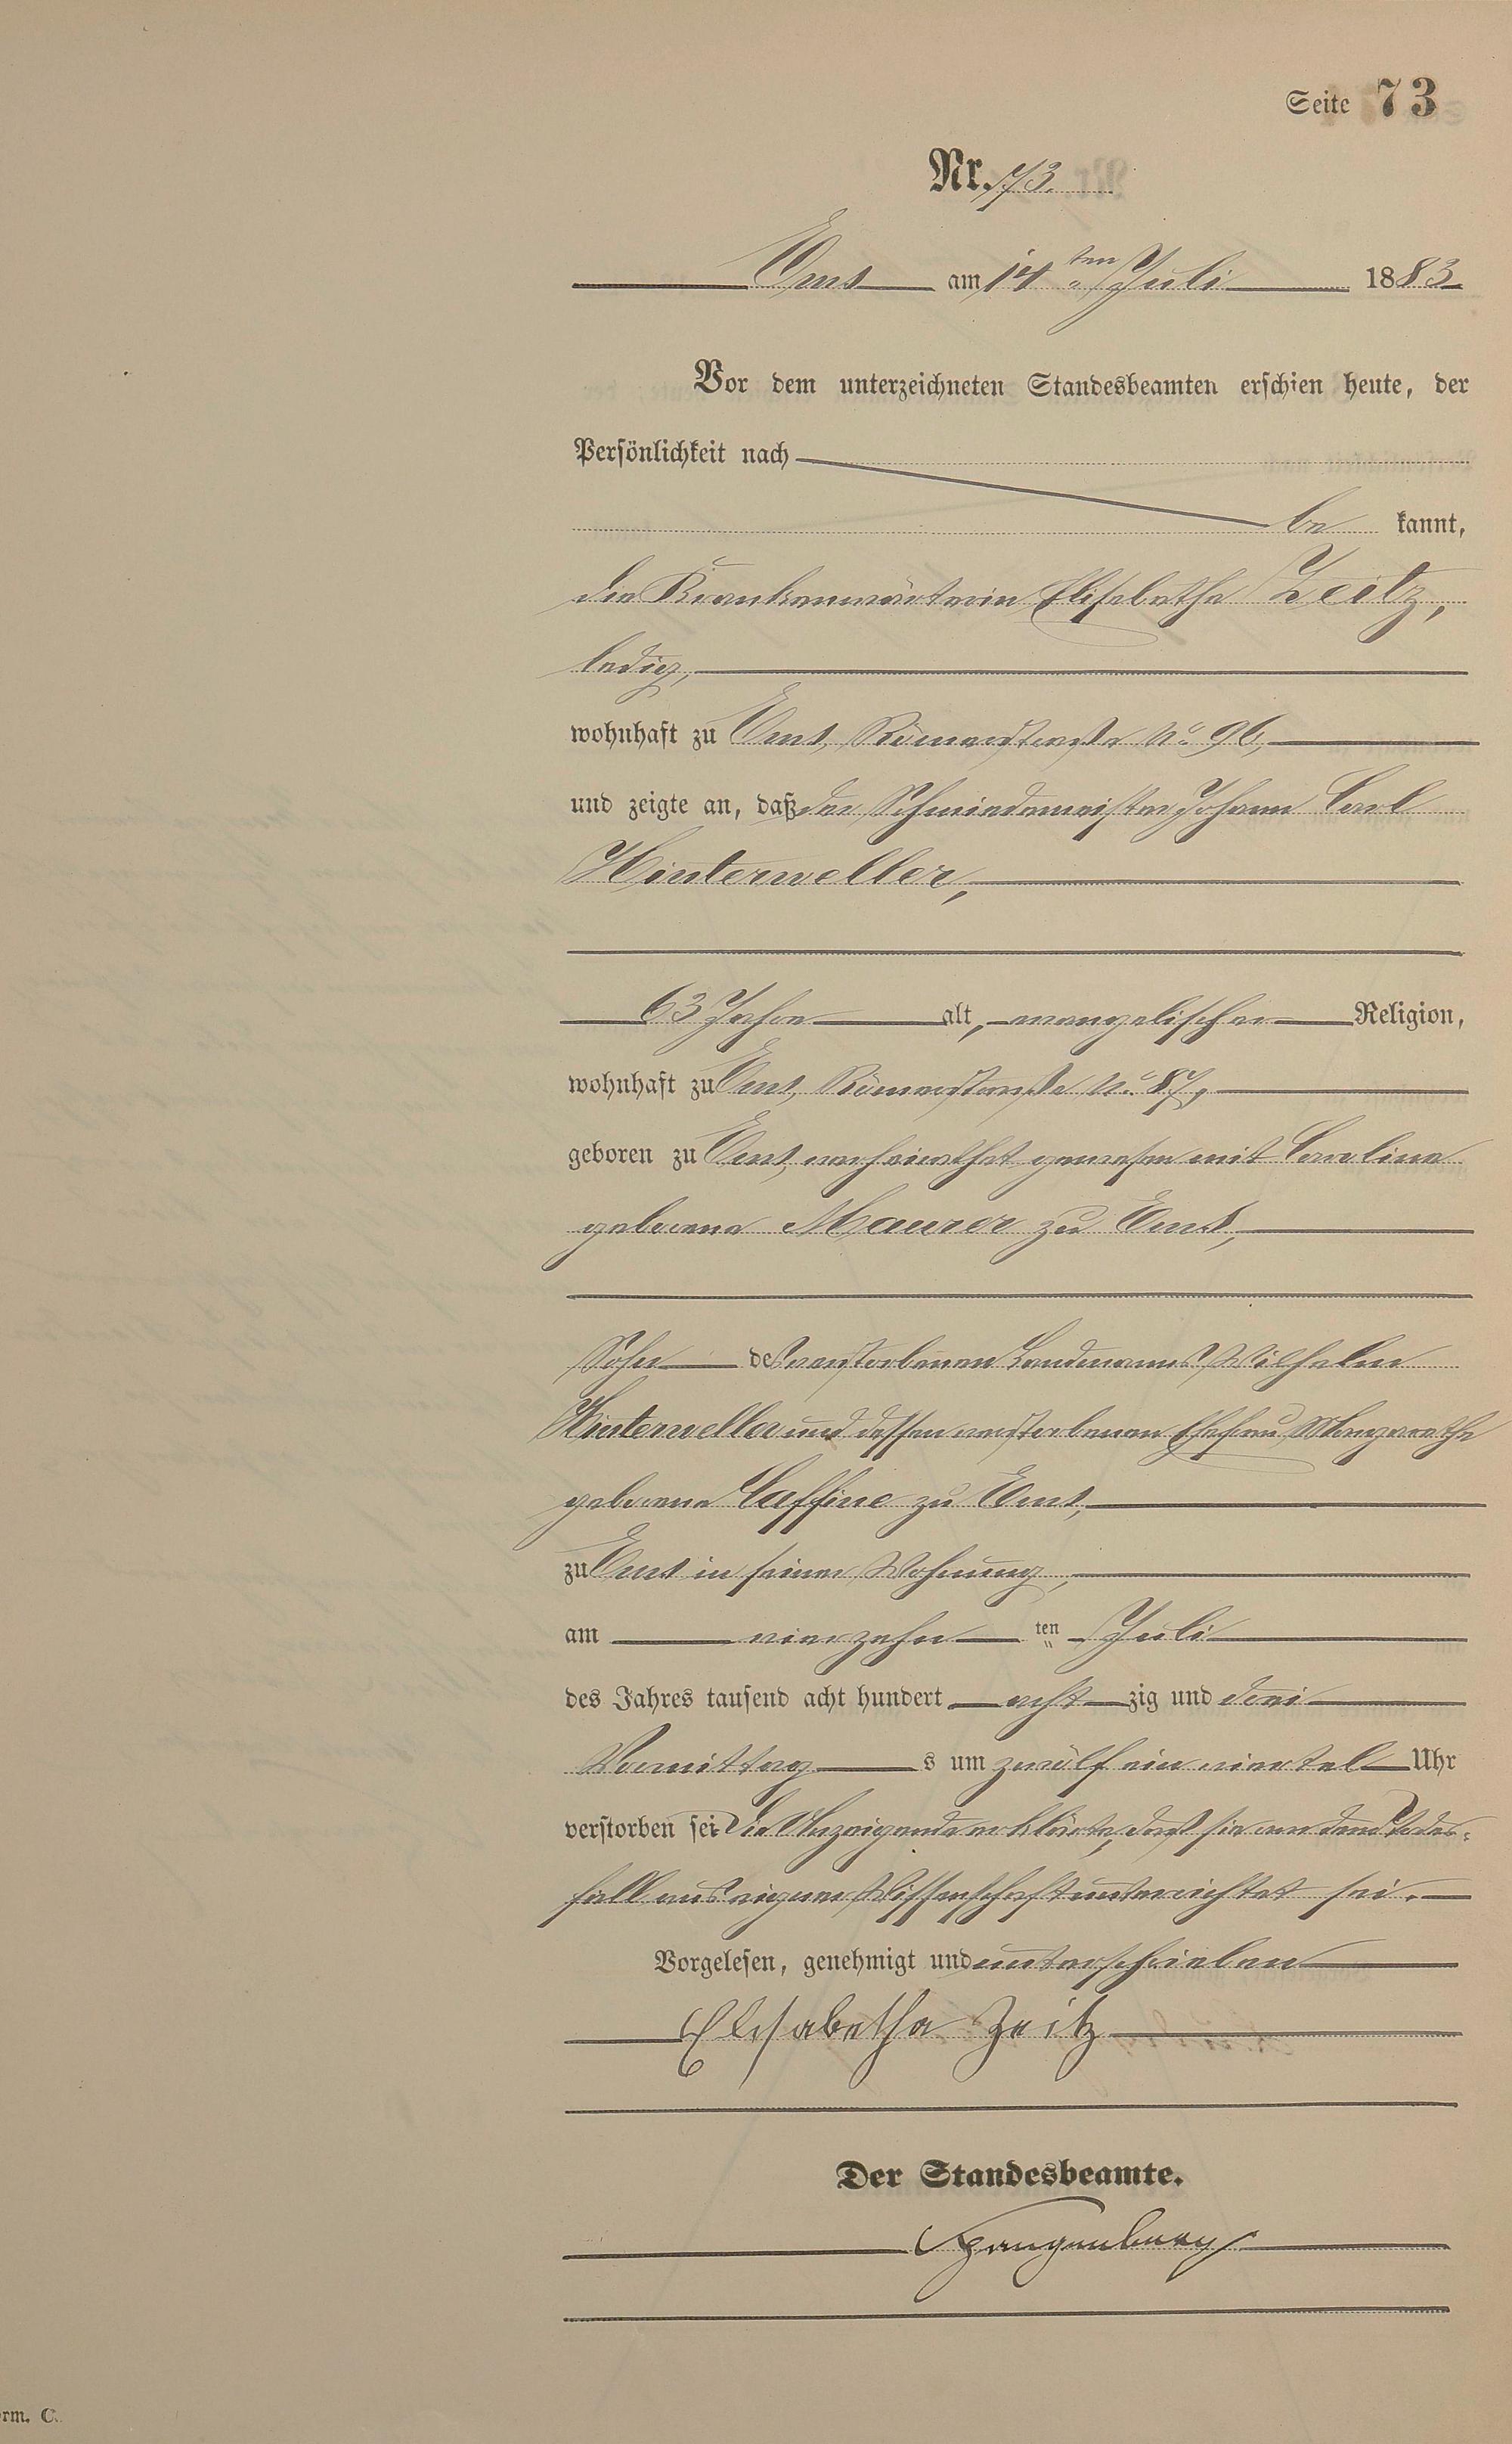 Seite 73
Nr. 73.
Ems am 14ten Juli 1883.
Vor dem unterzeichneten Standesbeamten erschien heute, der
Persönlichkeit nach
be kannt,
die Krankenwärterin Elisabetha Zeitz,
ledig,
wohnhaft zu Ems, Römerstraße No. 96,
und zeigte an, daß der Schmiedemeister Johann Carl
Hinterweller,
63 Jahre alt, evangelischer Religion,
wohnhaft zu Ems, Römerstraße No. 87,
geboren zu Ems, verheirathet gewesen mit Caroline
geborene Maurer zu Ems,
Sohn des verstorbenen Landmanns Wilhelm
Hinterweller und dessen verstorbenen Ehefrau Margarethe
geborene Caffine zu Ems,
zu Ems in seiner Wohnung,
am vierzehn ten Juli
des Jahres tausend acht hundert acht zig und drei
Vormittag s um zwölf ein viertel Uhr
verstorben sei. Die Anzeigende erklärte, daß sie von dem Todes-
fall aus eigener Wissenschaft unterrichtet sei.
Vorgelesen, genehmigt und unterschrieben
Elisabetha Zeitz
Der Standesbeamte.
Spangenberg
orm. C.